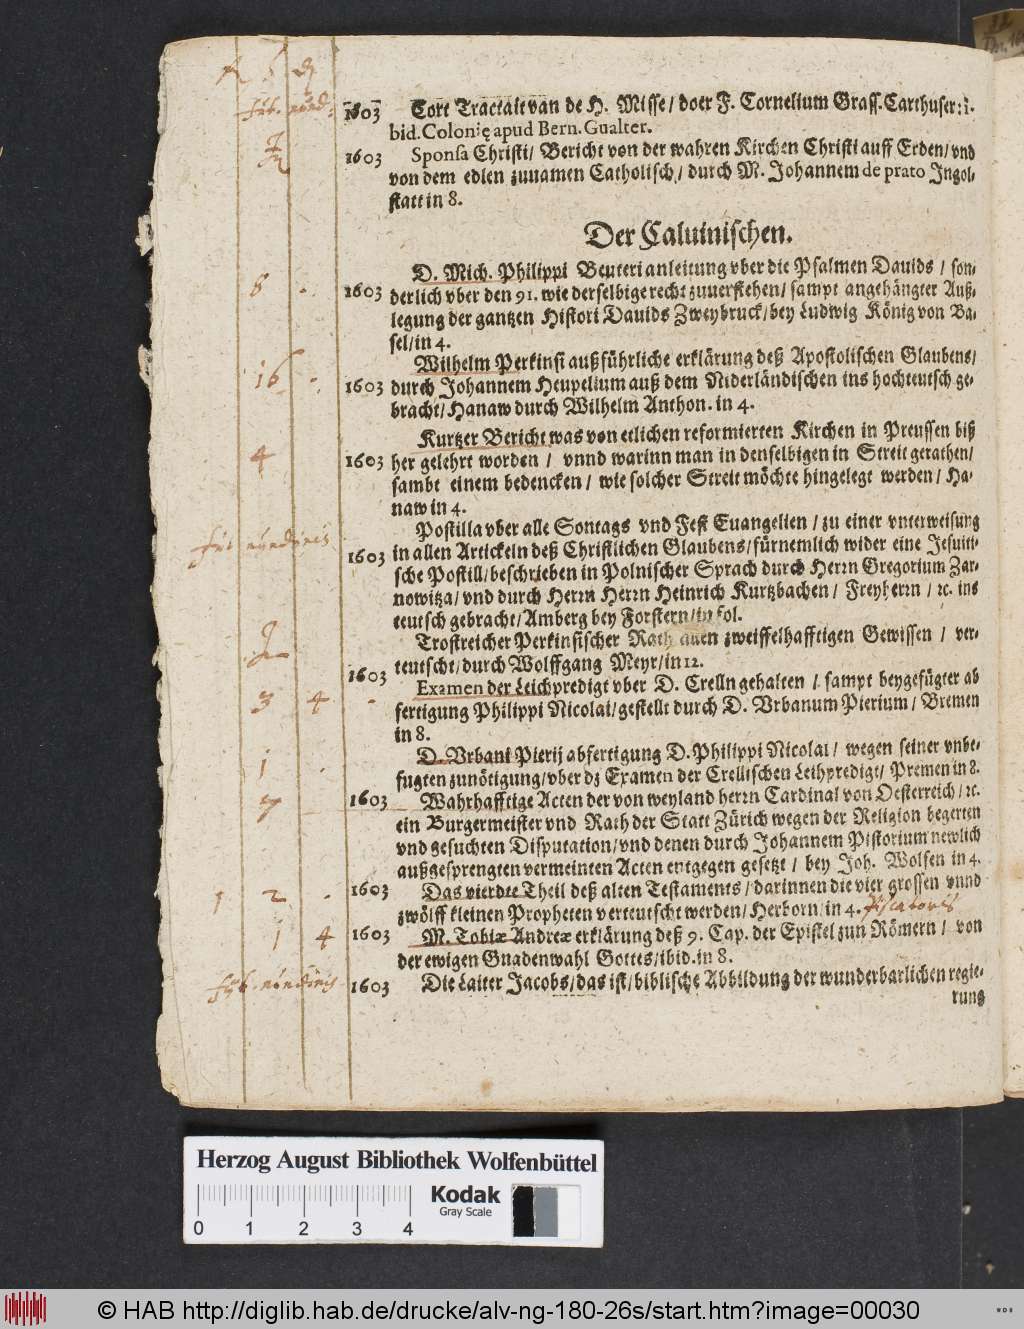 1603 Cort Tractait van de H. Misse/ doer F. Cornelium Grass. Carthuser:
bid. Colonię apud Bern. Gualter.
1603 Sponsa Christi/ Bericht von der wahren Kirchen Christi auff Erden/ vnd
von dem edlen zunamen Catholisch/ durch M. Johannem de prato Ingol-
statt in 8.
Der Caluinischen.
D. Mich. Philippi Beuteri anleitung vber die Psalmen Dauids / son-
1603 derlich vber den 91. wie derselbige recht zuuerstehen/ sampt angehängter Auß-
legung der gantzen Histori Dauids Zweybruck/ bey Ludwig König von Ba-
sel/ in 4.
Wilhelm Perkinsi außführliche erklärung deß Apostolischen Glaubens/
1603 durch Johannem Heupelium auß dem Niderländischen ins hochteutsch ge-
bracht/ Hanaw durch Wilhelm Anthon. in 4.
Kurtzer Bericht was von etlichen reformierten Kirchen in Preussen biß
1603 her gelehrt worden / vnnd warinn man in denselbigen in Streit gerathen/
sambt einem bedencken / wie solcher Streit möchte hingelegt werden/ Ha-
naw in 4.
Postilla vber alle Sontags vnd Fest Euangelien / zu einer vnterweisung
1603 in allen Artickeln deß Christlichen Glaubens/ fürnemlich wider eine Jesuiti-
sche Postill/ beschrieben in Polnischer Sprach durch Herrn Gregorium Zar-
nowitza/ vnd durch Herrn Herrn Heinrich Kurtzbachen / Freyherrn / ꝛc. ins
teutsch gebracht/ Amberg bey Forstern/ in fol.
Trostreicher Perkinsischer Rath allen zweiffelhafftigen Gewissen / ver-
1603 teutscht/ durch Wolffgang Meyr/ in 12.
Examen der Leichpredigt vber D. Crelln gehalten / sampt beygefügter ab
fertigung Philippi Nicolai/ gestellt durch D. Vrbanum Pierium / Bremen
in 8.
D. Vrbani Pierij abfertigung D. Philippi Nicolai / wegen seiner vnbe-
fugten zunötigung/ vber dz Examen der Crellischen Leihpredigt/ Premen in 8.
1603 Wahrhafftige Acten der von weyland herrn Cardinal von Oesterreich/ ꝛc.
ein Burgermeister vnd Rath der Statt Zürich wegen der Religion begerten
vnd gesuchten Disputation/ vnd denen durch Johannem Pistorium newlich
außgesprengten vermeinten Acten entgegen gesetzt / bey Joh. Wolfen in 4.
1603 Das vierdte Theil deß alten Testaments/ darinnen die vier grossen vnnd
zwölff kleinen Propheten verteutscht werden/ Herborn/ in 4. Piscatoris
1603 M. Tobiæ Andreæ erklärung deß 9. Cap. der Epistel zun Römern / von
der ewigen Gnadenwahl Gottes/ ibid. in 8.
1603 Die Laiter Jacobs/ das ist/ biblische Abbildung der wunderbarlichen regie-
rung
6
16
4
3 4
1
7
1 2
1 4
Herzog August Bibliothek Wolfenbüttel
Kodak
Gray Scale
0 1 2 3 4
© HAB http://diglib.hab.de/drucke/alv-ng-180-26s/start.htm?image=00030